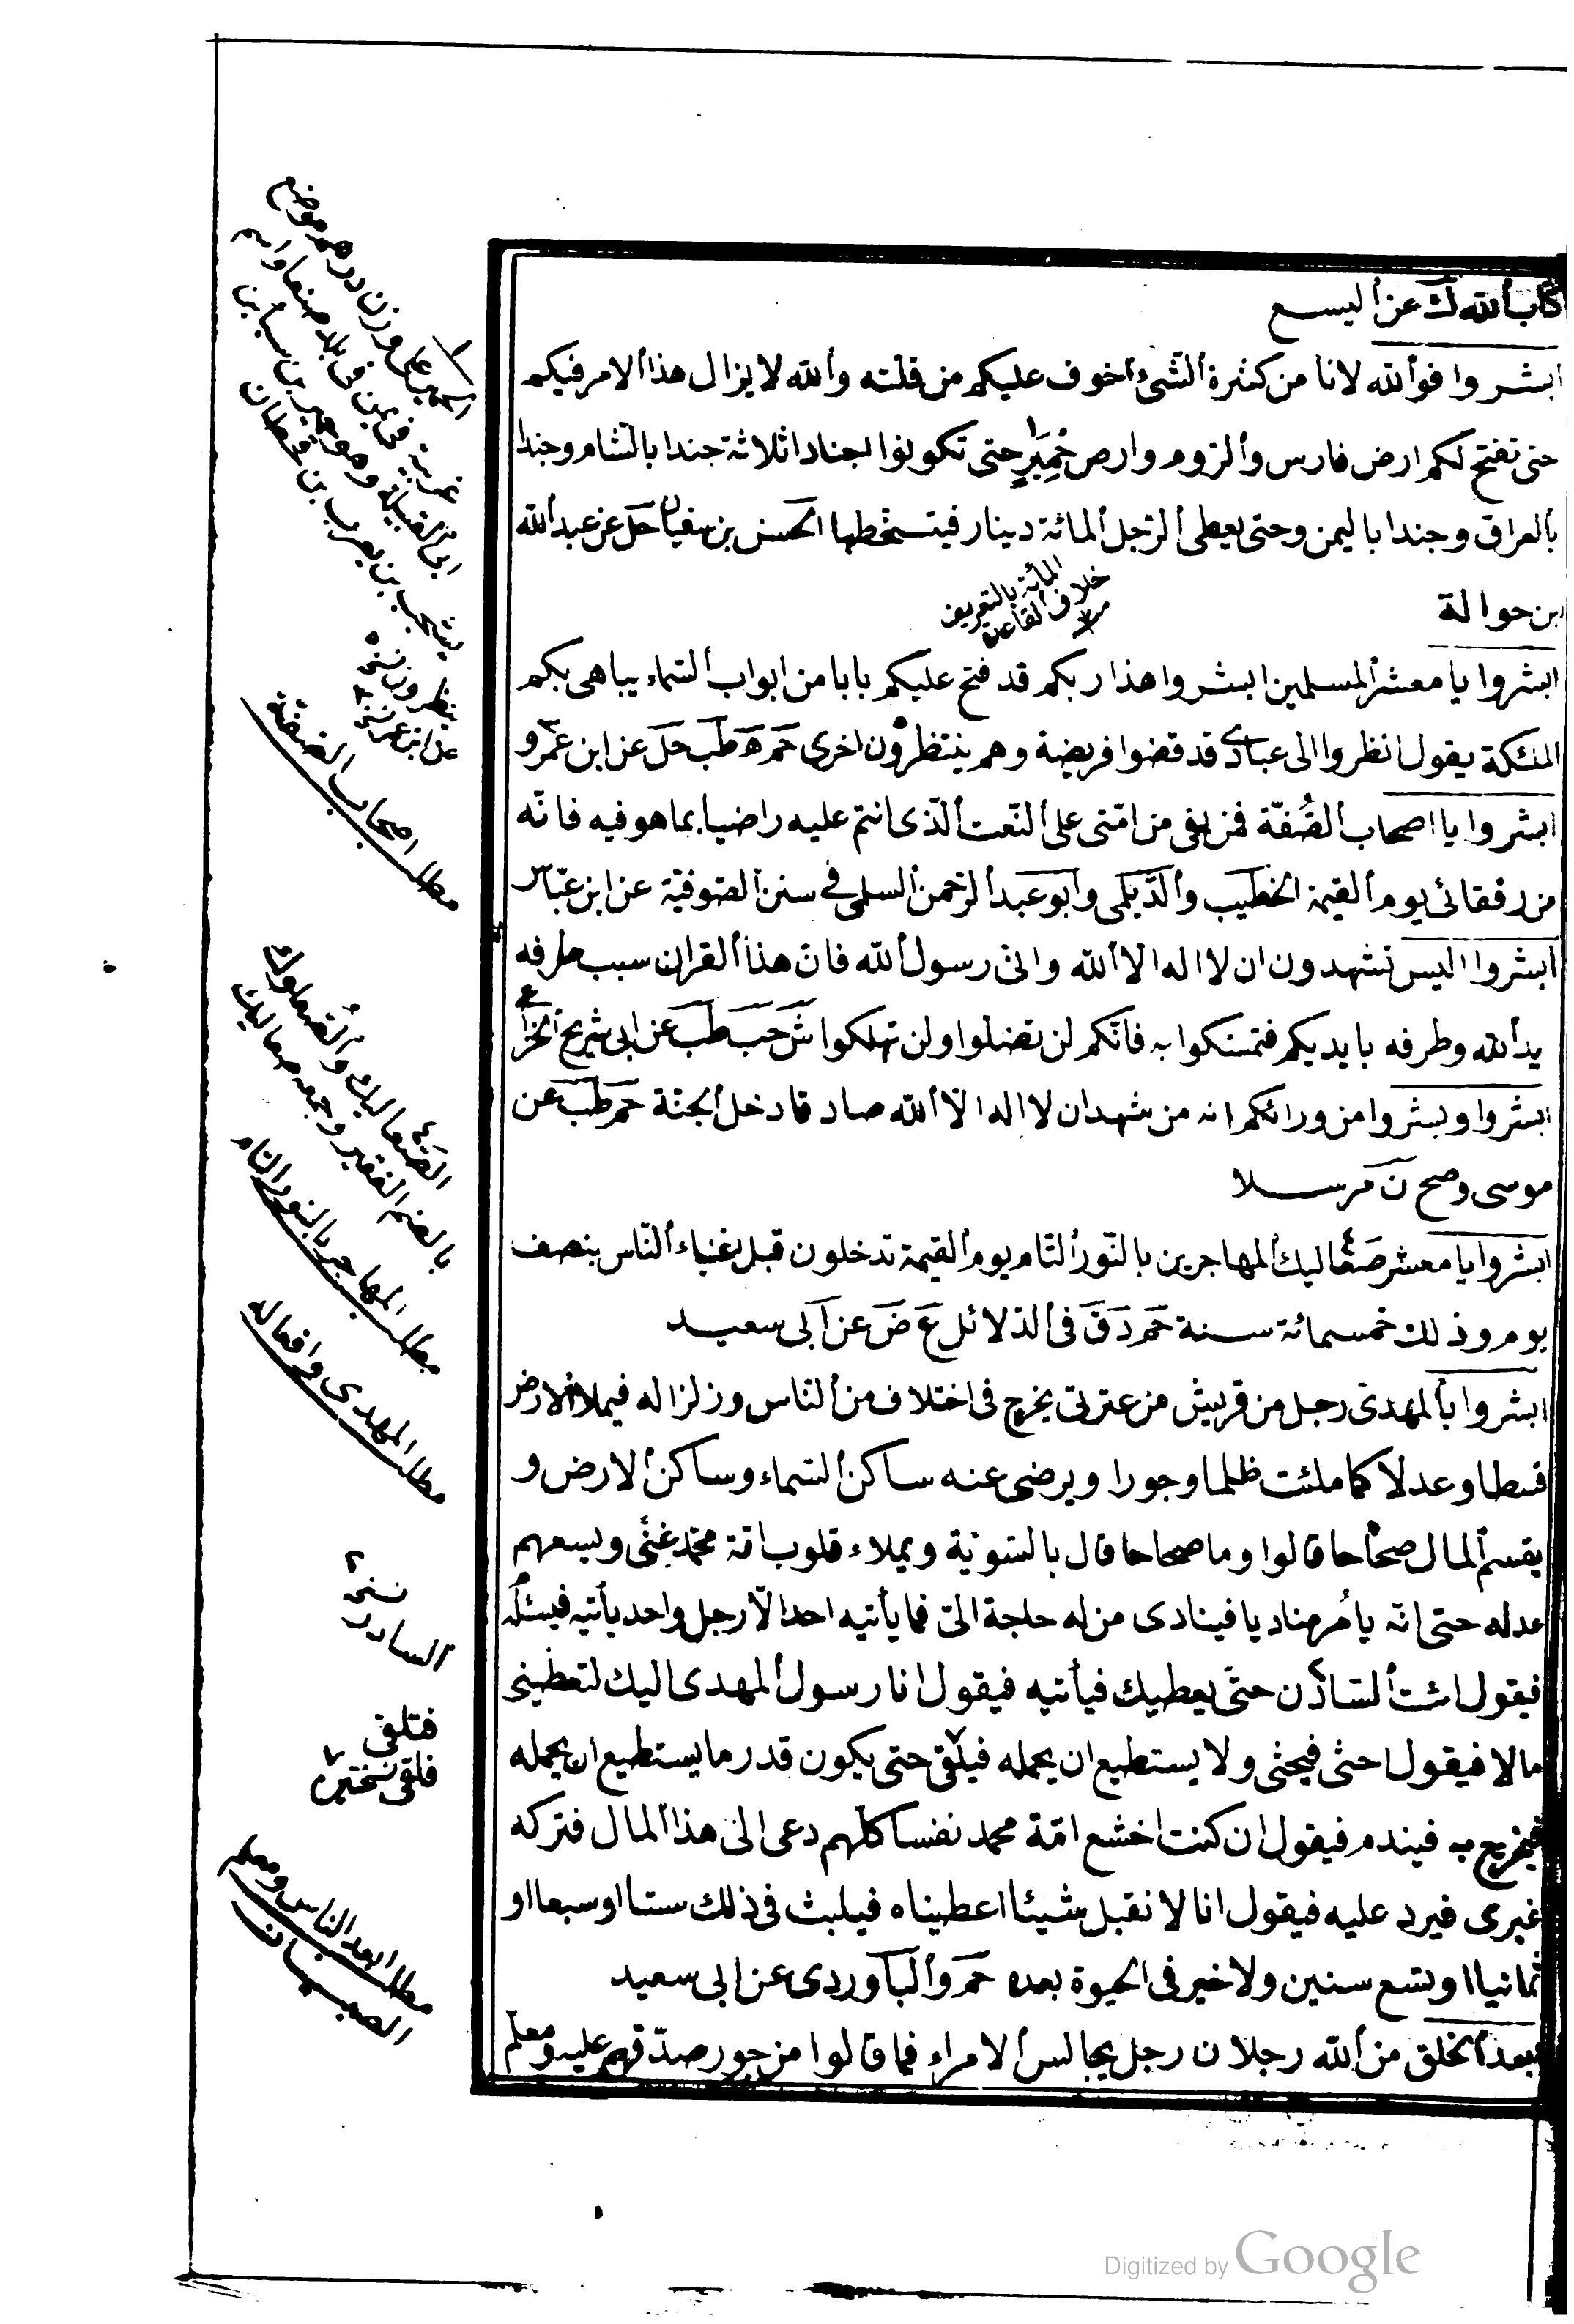 كتاب الله ك عن اليسع
ابشروا فوالله لانا من كثرة الشئ اخوف عليكم من قلته والله لا يزال هذا الامر فيكم
حتى تفتح لكم ارض فارس والروم وارض حمير حتى تكونوا اجنادا ثلاثة جندا بالشام وجندا
بالعراق وجندا باليمن وحتى يعطى الرجل المائة دينار فيتسخطها الحسن بن سفيان حل عن عبد الله
بن حوالة
المأية بالتعريف
خلاف القاعدة
ابشروا يا معشر المسلمين ابشروا هذا ربكم قد فتح عليكم بابا من ابواب السماء يباهى بكم
الملئكة يقول انظروا الى عبادى قد قضوا فريضة وهم ينتظرون اخرى حم ه طب حل عن ابن عمرو
ابشروا يا اصحاب الصفة فمن بقى من امتى على النعت الذى انتم عليه راضيا بما هو فيه فانه
من رفقائى يوم القيمة الخطيب والديلمى وابو عبد الرحمن السلمى فى سنن الصوفية عن ابن عباس
ابشروا اليس تشهدون ان لا اله الا الله وانى رسول الله فان هذا القران سبب طرفه
يد الله وطرفه بايديكم فتمسكوا به فانكم لن تضلوا ولن تهلكوا ش حب طب عن ابى شريح الخزاعى
ابشروا وبشروا من ورائكم انه من شهد ان لا اله الا الله صادقا دخل الجنة حم طب عن
موسى وصح ن مرسلا
ابشروا يا معشر صعاليك المهاجرين بالنور التام يوم القيمة تدخلون قبل اغنياء الناس بنصف
يوم وذلك خمسمائة سنة حم د ق فى الدلائل ع ض عن ابى سعيد
ابشروا بالمهدى رجل من قريش من عترتى يخرج فى اختلاف من الناس وزلزاله فيملا الارض
قسطا وعدلا كما ملئت ظلما وجورا ويرضى عنه ساكن السماء وساكن الارض و
يقسم المال صحاحا قالوا وما صحاحا قال بالسوية ويملاء قلوب امة محمد غنى ويسعهم
عدله حتى انه يأمر مناديا فينادى من له حاجة الى فما يأتيه احد الا رجل واحد يأتيه فيسئله
فيقول ائت السادن حتى يعطيك فيأتيه فيقول انا رسول المهدى اليك لتعطينى
مالا فيقول احثى فيحثى ولا يستطيع ان يحمله فيلقى حتى يكون قدر ما يستطيع ان يحمله
فيخرج به فيندم فيقول ان كنت اخشع امة محمد نفسا كلهم دعى الى هذا المال فتركه
غيرى فيرد عليه فيقول انا لا نقبل شيئا اعطيناه فيلبث فى ذلك ستا او سبعا او
ثمانيا او تسع سنين ولا خير فى الحيوة بعده حم والباوردى عن ابى سعيد
ابعد الخلق من الله رجلان رجل يجالس الامراء فما قالوا من جور صدقهم عليه ومعلم
الحمير على وزن درهم موضع
غربية فى يمن فى بلد صنعا واسم
ابى القبيلة وهو حمير بن سبأ بن
يشجب بن يعرب بن قحطان
ينظرون نسخه
عن ابن عمر نسخه
مطلب اصحاب الصفة
الصعاليك والصعلوك
بالضم الفقير وجمعه صعاليك
مطلب المهاجر بالنور التام
مطلب المهدى وافعاله
نسخه
السادر
فتلقى
فلقى نسختين
مطلب ابعد الناس ومعلم
الصبيان
Digitized by Google